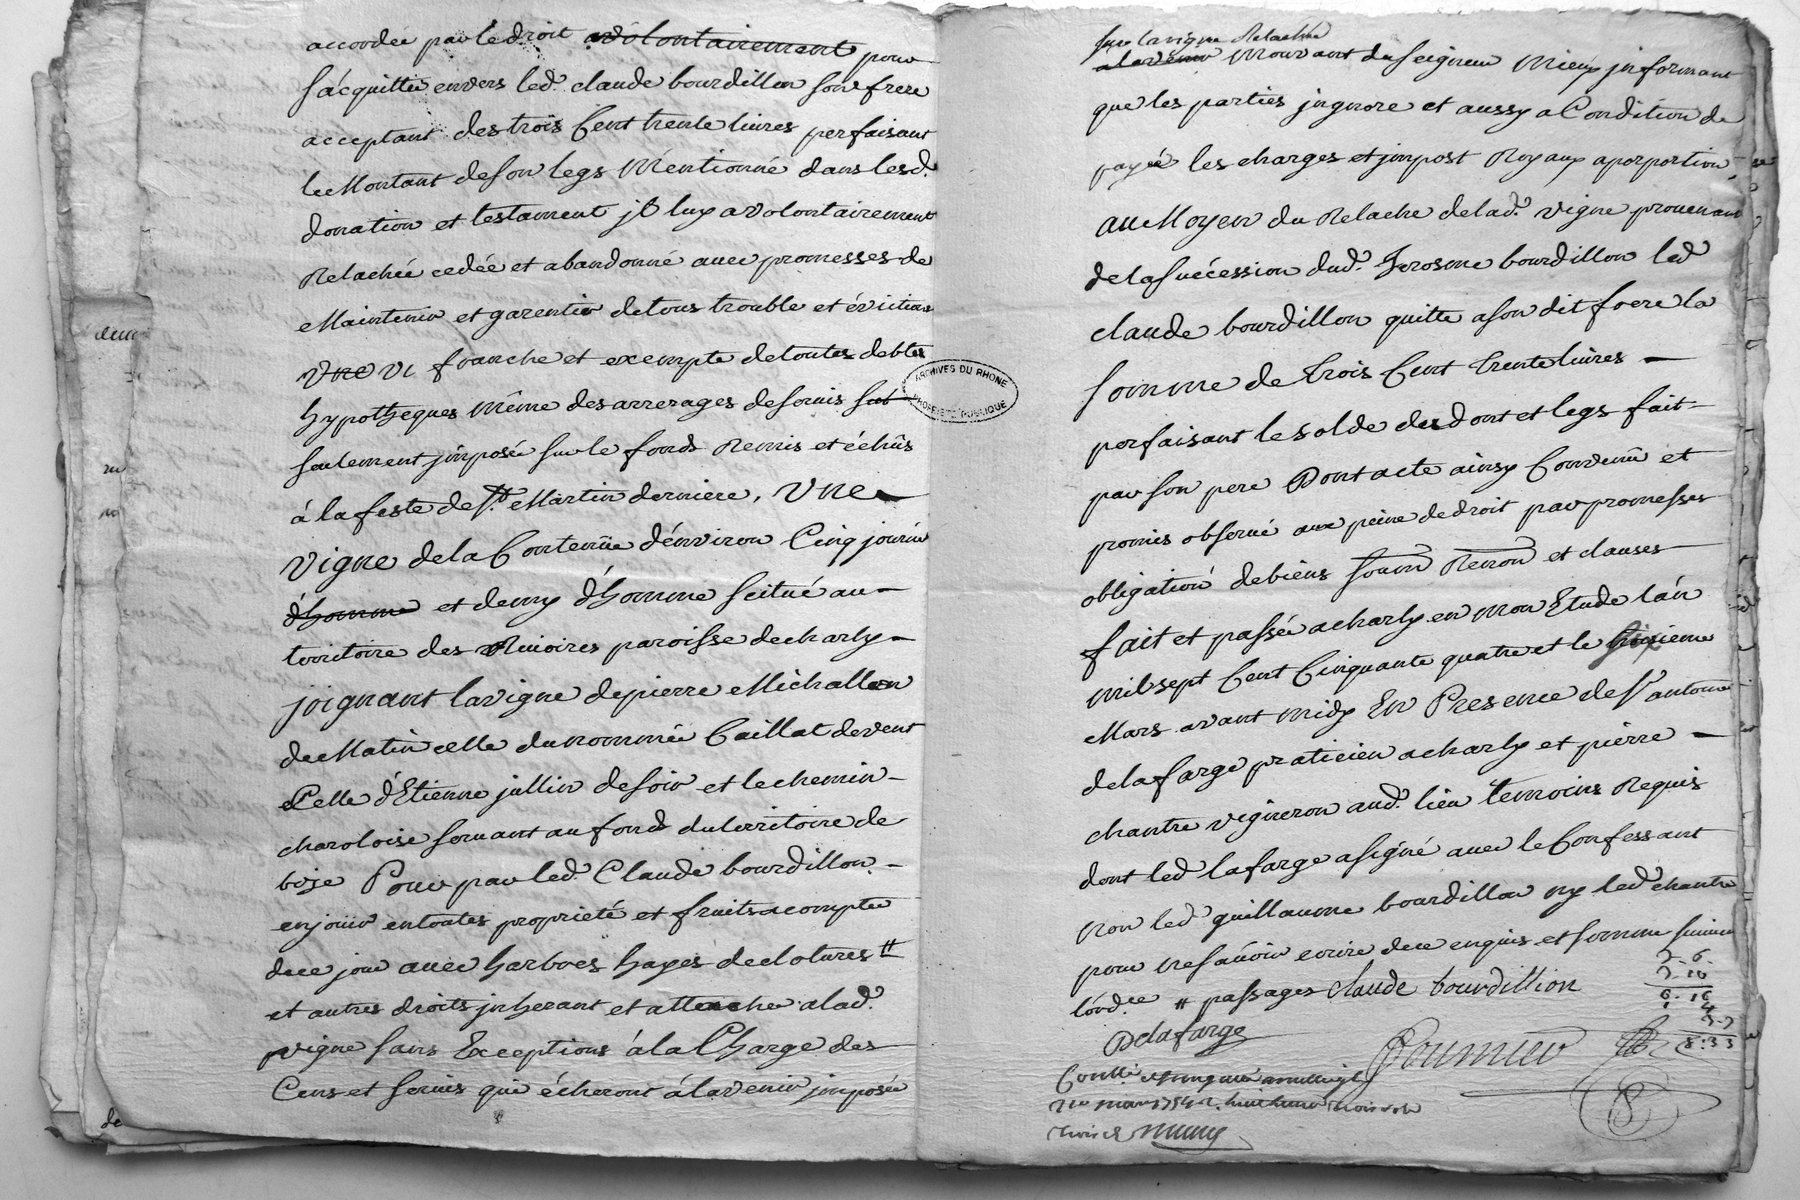 accordée par le droit a volontairement pour
s'acquitter envers led. claude bourdillon son frere
acceptant des trois Cent trente livres perfaisant
le Montant de son legs Mentionné dans lesd.
donation et testament jl luy a volontairement
Relachée cedée et abandonné avec promesses de
Maintenir et garentir de tous trouble et évictions
une franche et exempte de toutes debtes
hypotheques même des arrerages de servis
seulement jmposée sur le fonds Remis et échûs
á la feste de St. Martin derniere, Une
Vigne de la Contenüe d'énviron Cinq journée
d'homme et demy d'homme scitué au
territoire des paroisse de charly
joignant la vigne de pierre Michallon
de Matin celle du nommée Caillat de vent
Celle d'Etienne jullin de soir et le chemin
charoloise servant au fonds du territoire de
bize Pour par led. Claude bourdillon
en jouir en toutes proprieté et fruits a compter
de ce jour avec harbres hayes de clotures #
et autres droits jnherant et attaché a lad.
vigne sans Exceptions á la Charge des
Cens et servis qui écheront á l'avenir jmposée
sur la vigne Relachée
a l'avenir Mouvant du seigneur Mieux jnformant
que les parties jngnore et aussy a Condition de
payé les charges et jmpost Royaux a porportion,
au Moyen du Relache de lad. vigne provenant
de la sucéssion dud. Jerosme bourdillon led
claude bourdillon quitte a son dit frere la
somme de trois Cent trente livres
perfaisant le solde des dont et legs fait
par son pere Dont acte ainsy Convenü et
promis observé aux peine de droit par promesses
obligation de biens soum Renon et clauses
fait et passée a charly en mon Etude l'án
mil sept Cent Cinquante quatre et le
Mars avant midy En Presence de Sr antoine
delafarge praticien a charly et pierre
chantre vigneron aud. lieu temoins Requis
dont led lafarge a signé avec le Confessant
Non led guillaume bourdillon ny led chantre
pour ne sávoir ecrire de ce enquis et somme suivant
l'ord.ce # passages claude bourdillion
Delafarge
2. 6.
2. 10
6. 16
8. 33
ARCHIVES DU RHONE
PROPRIÉTÉ PUBLIQUE